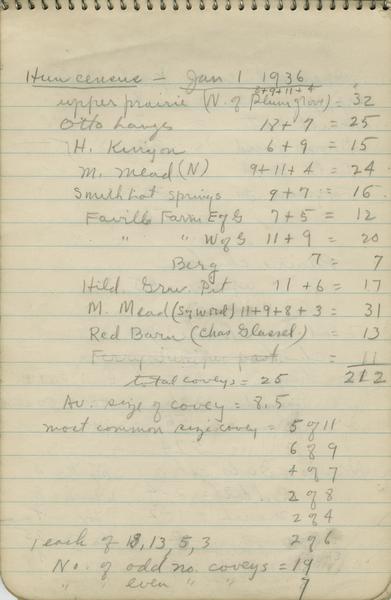 Hun census — Jan 1 1936
8+9+11+4
upper prairie (N. of Plum grove) = 32
Otto Lange 18+7 = 25
H. Kinyon 6+9 = 15
M. Mead (N) 9+11+4 = 24
Smith hot springs 9+7 = 16
Faville Farm E of G 7+5 = 12
" " W of G 11+9 = 20
Berg 7 = 7
Hild. Grav. Pit 11+6 = 17
M. Mead (S of word) 11+9+8+3 = 31
Red Barn (Chas Glassel) = 13
Ferry = 11
total coveys = 25 212
Av. size of covey = 8.5
most common size covey = 5 of 11
6 of 9
4 of 7
2 of 8
2 of 4
1 each of 18, 13, 5, 3 2 of 6
No. of odd no. coveys = 19
" " even " " 7